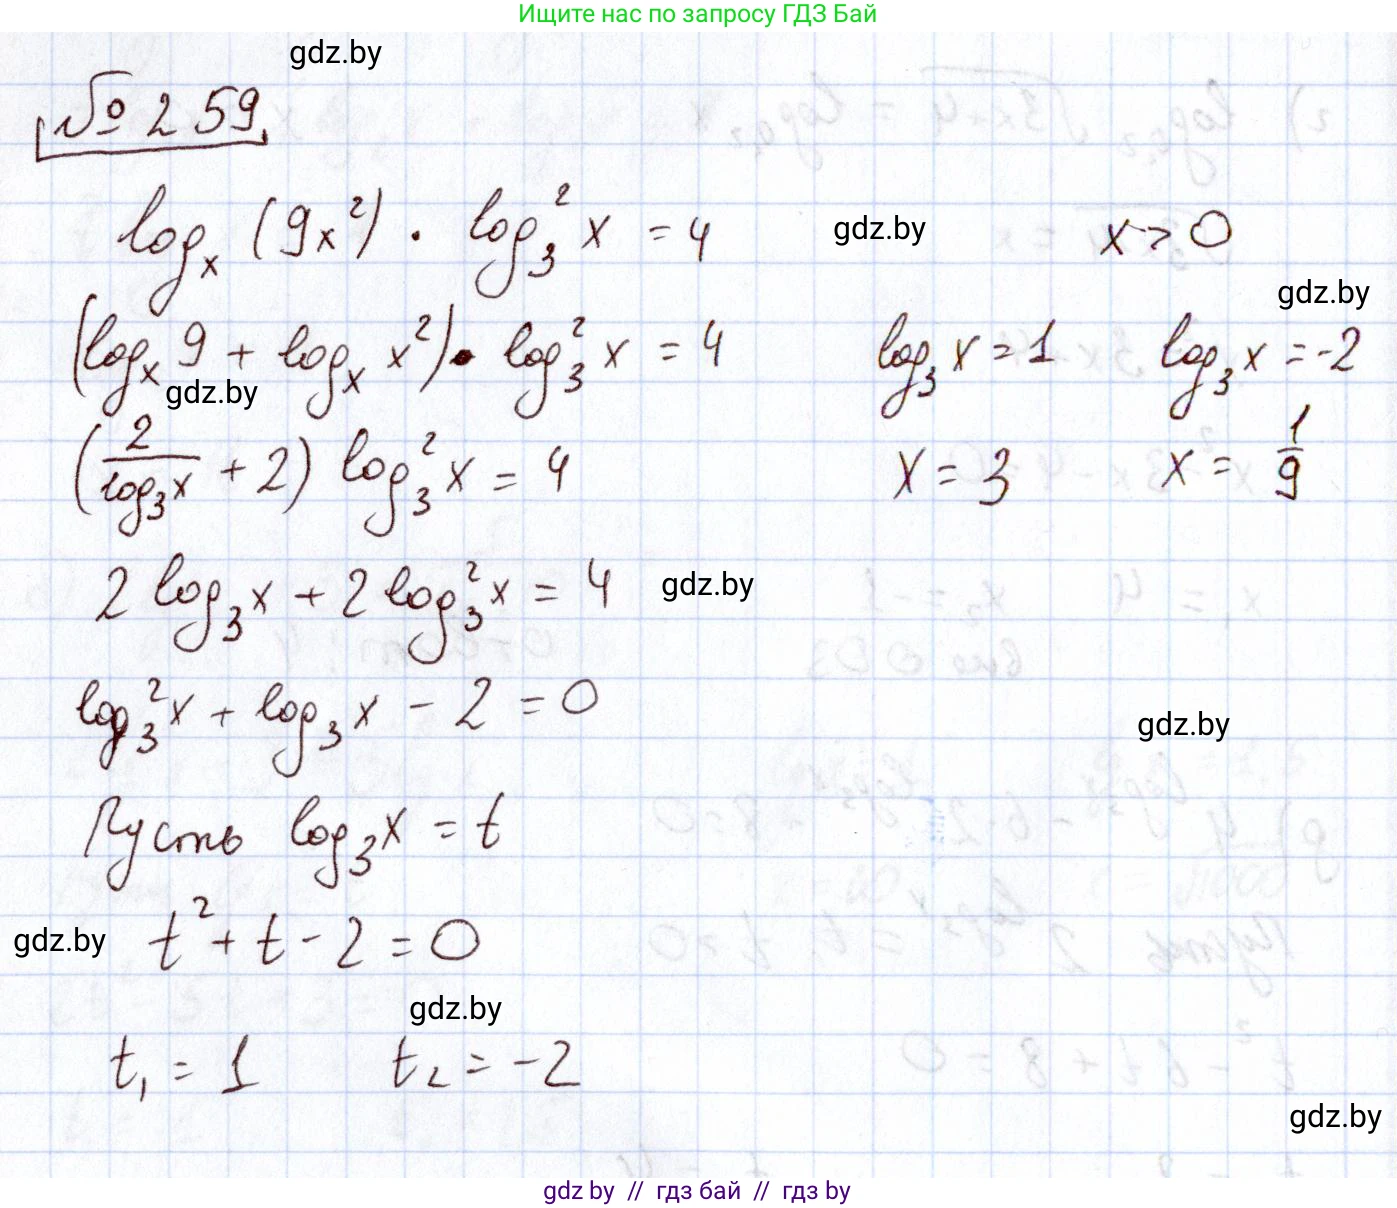 Ищите нас по запросу ГДЗ Бай
gdz.by
№ 259
log_x (9x²) · log₃² x = 4
gdz.by
x > 0
gdz.by
(log_x 9 + log_x x²) · log₃² x = 4
log₃ x = 1 log₃ x = -2
gdz.by
(2/log₃x + 2) log₃² x = 4
x = 3 x = 1/9
2 log₃ x + 2 log₃² x = 4
gdz.by
log₃² x + log₃ x - 2 = 0
gdz.by
Пусть log₃ x = t
gdz.by
t² + t - 2 = 0
gdz.by
t₁ = 1 t₂ = -2
gdz.by
gdz by // гдз бай // гдз by